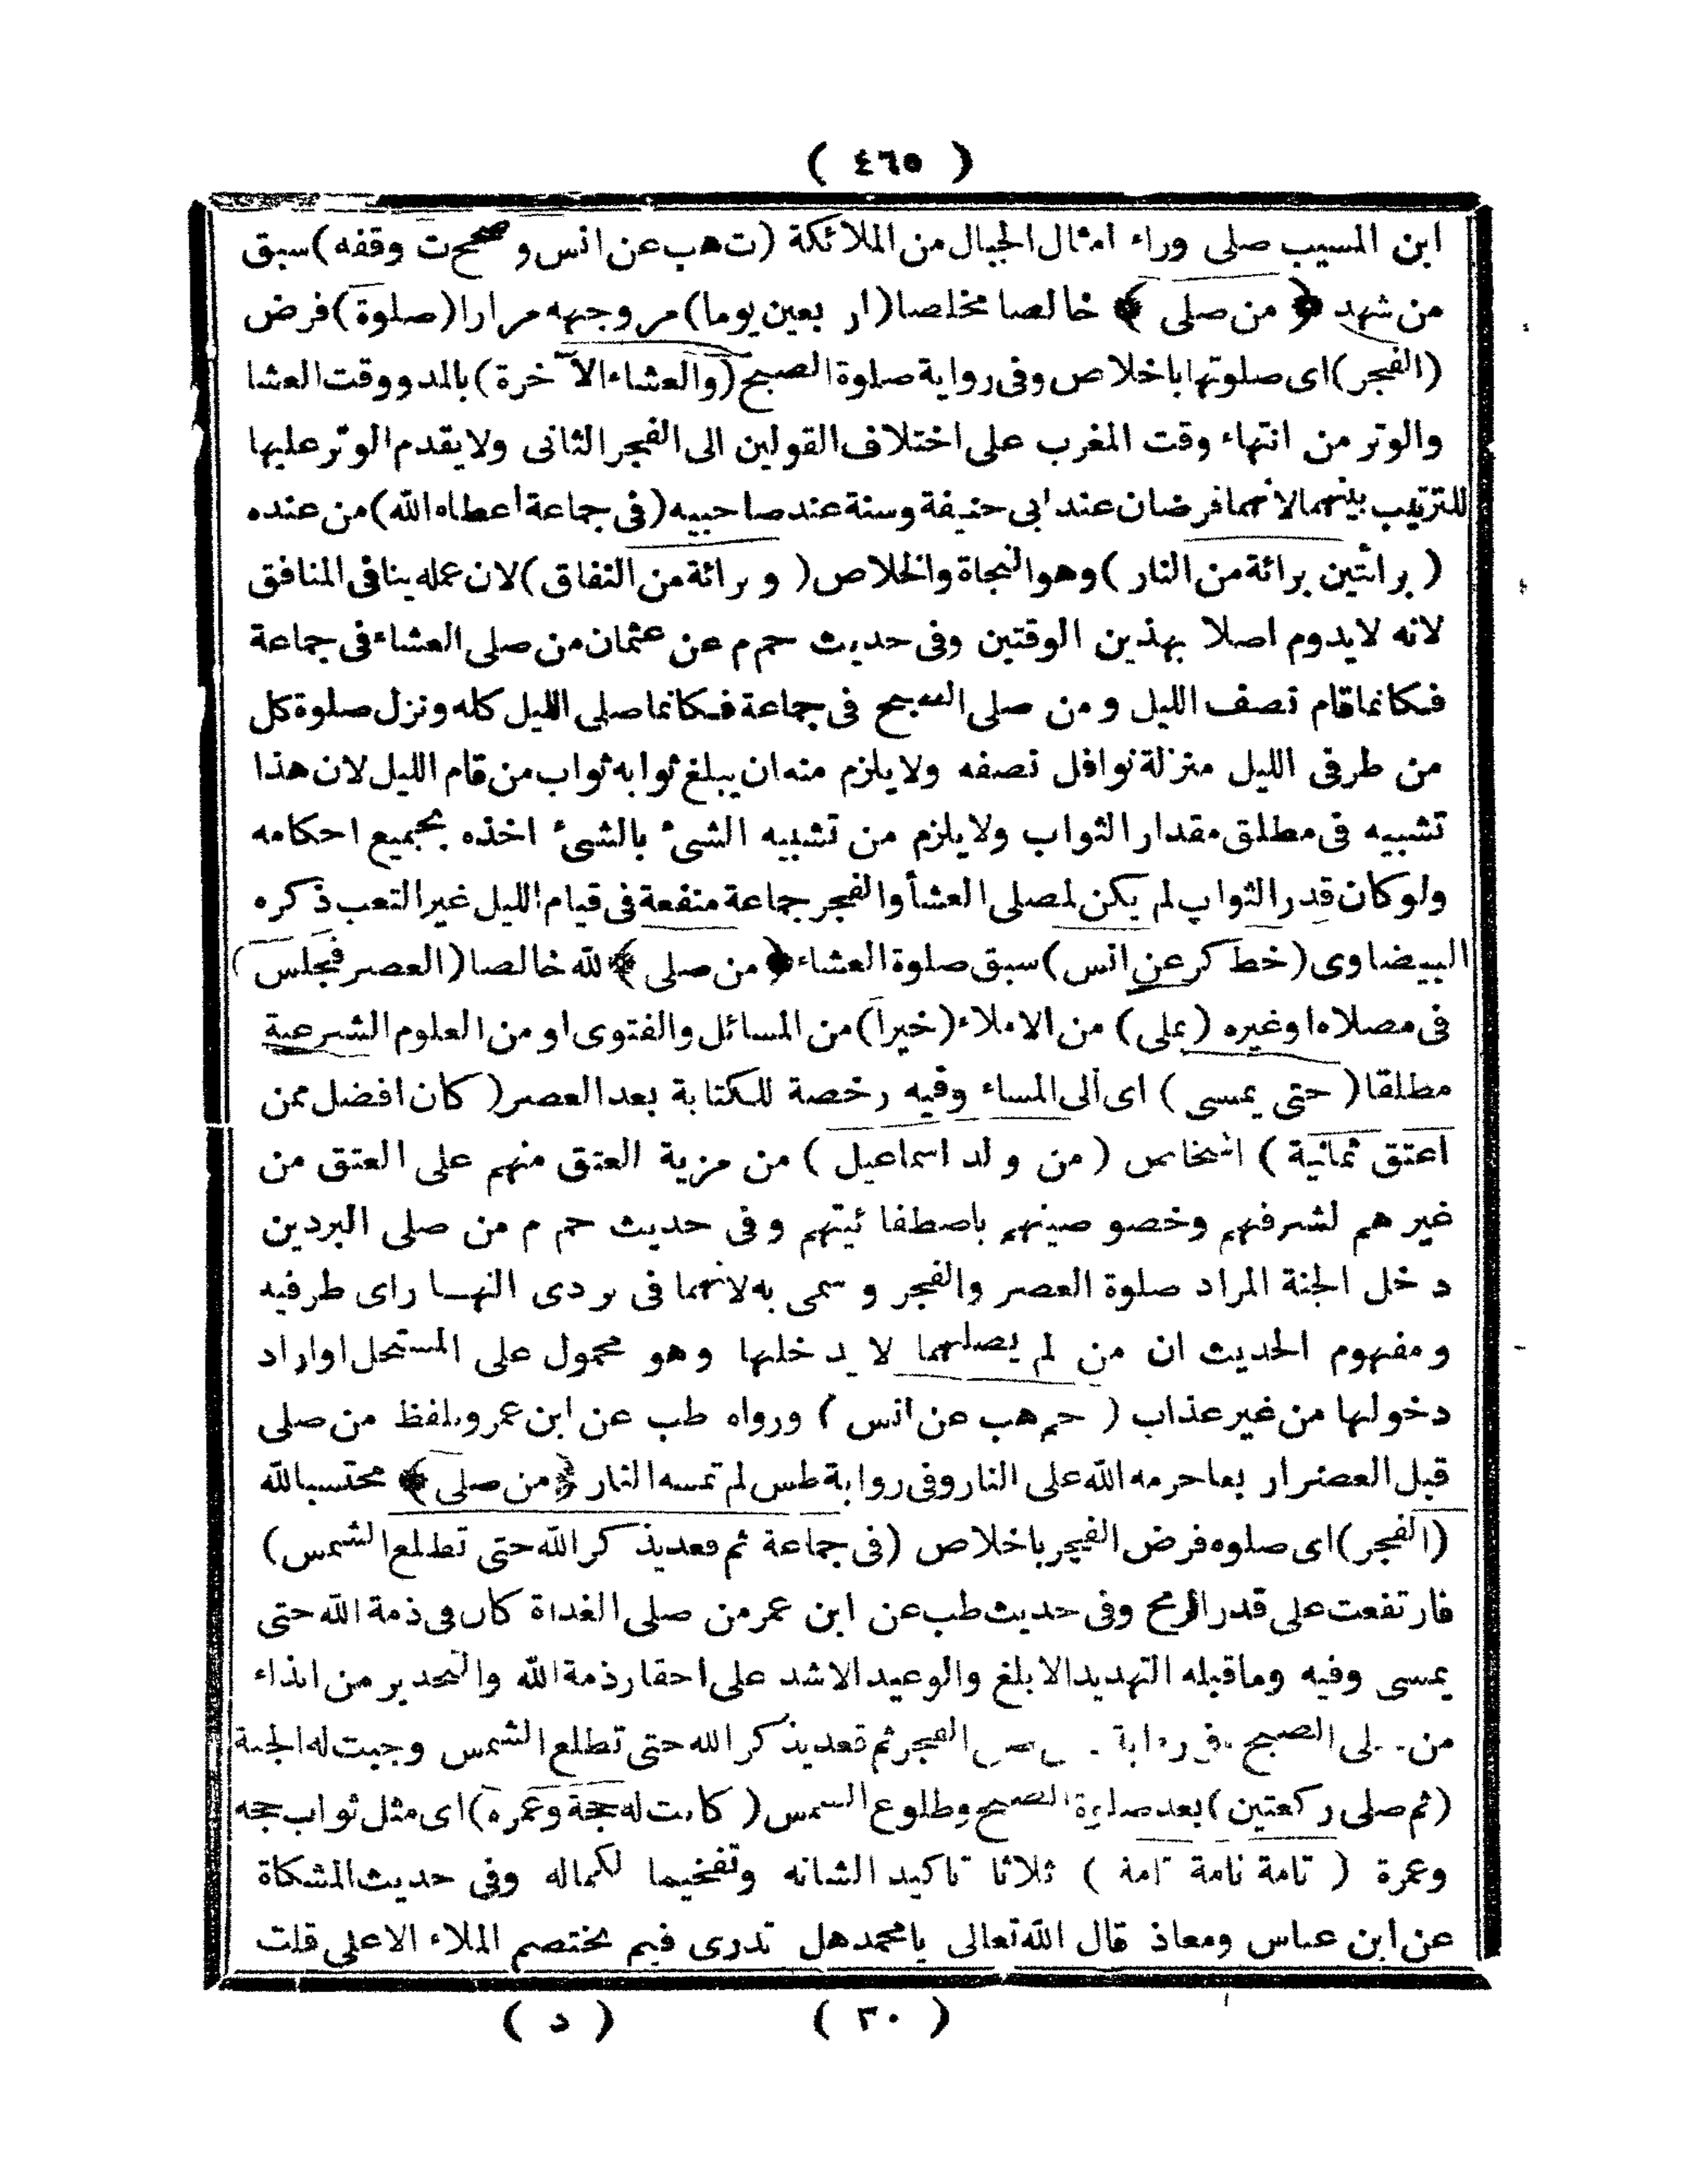 ( ٤٦٥ )
ابن المسيب صلى وراء امثال الجبال من الملائكة (ت هب عن انس و صحح ت وقفه) سبق
من شهد ﴿ من صلى ﴾ خالصا مخلصا (اربعين يوما) مر وجهه مرارا (صلوة) فرض
(الفجر) اى صلوتها باخلاص وفى رواية صلوة الصبح (والعشاء الآخرة) بالمد ووقت العشا
والوتر من انتهاء وقت المغرب على اختلاف القولين الى الفجر الثانى ولا يقدم الوتر عليها
للترتيب بينهما لانهما فرضان عند ابى حنيفة وسنة عند صاحبيه (فى جماعة اعطاه الله) من عنده
( برائتين برائة من النار ) وهو النجاة والخلاص ( و برائة من النفاق) لان عمله ينافى المنافق
لانه لايدوم اصلا بهذين الوقتين وفى حديث حم م عن عثمان من صلى العشاء فى جماعة
فكانما قام نصف الليل ومن صلى الصبح فى جماعة فكانما صلى الليل كله ونزل صلوة كل
من طرفى الليل منزلة نوافل نصفه ولا يلزم منه ان يبلغ ثوابه ثواب من قام الليل لان هذا
تشبيه فى مطلق مقدار الثواب ولا يلزم من تشبيه الشئ بالشئ اخذه بجميع احكامه
ولو كان قدر الثواب لم يكن لمصلى العشأ والفجر جماعة منفعة فى قيام الليل غير التعب ذكره
البيضاوى (خط كر عن انس) سبق صلوة العشاء ﴿ من صلى ﴾ لله خالصا (العصر فجلس)
فى مصلاه او غيره (يملى) من الاملاء (خيرا) من المسائل والفتوى او من العلوم الشرعية
مطلقا (حتى يمسى) اى الى المساء وفيه رخصة للكتابة بعد العصر (كان افضل ممن
اعتق ثمانية ) اشخاص (من ولد اسماعيل) من مزية العتق منهم على العتق من
غيرهم لشرفهم وخصوصيتهم باصطفائيتهم وفى حديث حم م من صلى البردين
دخل الجنة المراد صلوة العصر والفجر و سمى به لانهما فى بردى النهار اى طرفيه
ومفهوم الحديث ان من لم يصلهما لا يدخلها وهو محمول على المستحل او اراد
دخولها من غير عذاب ( حم هب عن انس ) ورواه طب عن ابن عمرو بلفظ من صلى
قبل العصر اربعا حرمه الله على النار وفى رواية طس لم تمسه النار ﴿ من صلى ﴾ محتسبا لله
(الفجر) اى صلوه فرض الفجر باخلاص (فى جماعة ثم قعد يذكر الله حتى تطلع الشمس)
فارتفعت على قدر الرمح وفى حديث طب عن ابن عمر من صلى الغداة كان فى ذمة الله حتى
يمسى وفيه وماقبله التهديد الابلغ والوعيد الاشد على احقار ذمة الله والتحذير من ايذاء
من صلى الصبح وفى رواية الفجر ثم قعد يذكر الله حتى تطلع الشمس وجبت له الجنة
(ثم صلى ركعتين) بعد صلوة الصبح وطلوع الشمس (كانت له حجة وعمره) اى مثل ثواب حجه
وعمرة ( تامة تامة تامة ) ثلاثا تاكيد الشانه وتفخيما لكماله وفى حديث المشكاة
عن ابن عباس ومعاذ قال الله تعالى يا محمد هل تدرى فيم يختصم الملاء الاعلى قلت
( ٣٠ ) ( د )